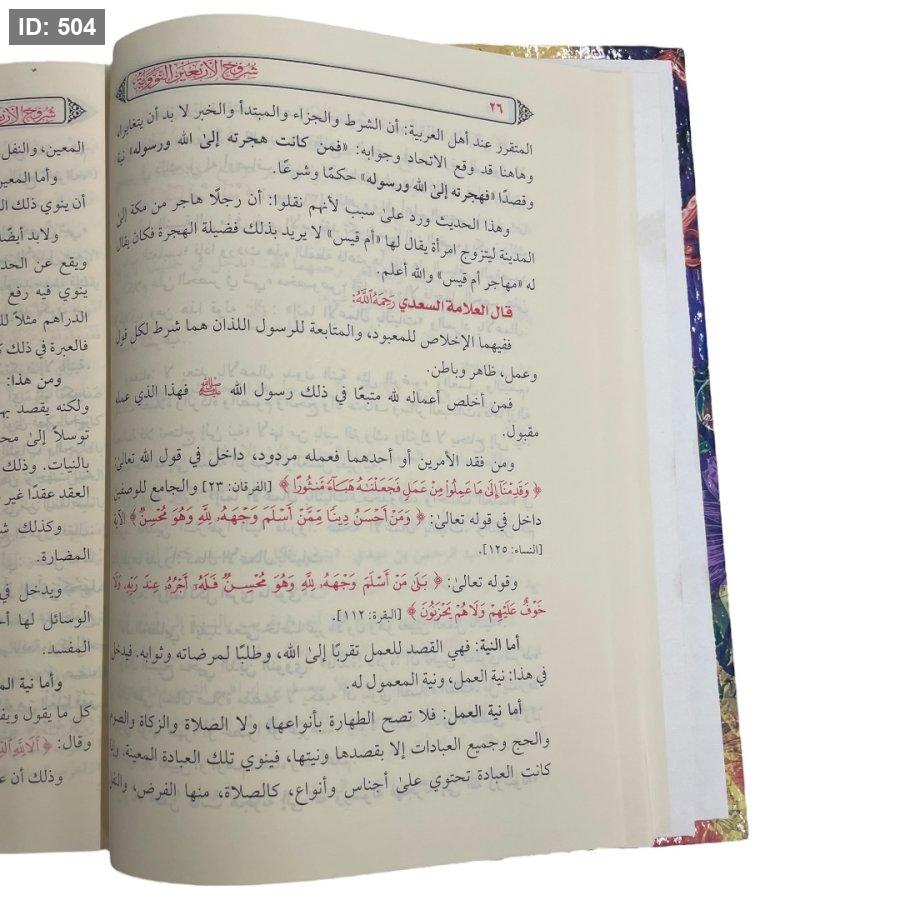 ID: 504
شروح الأربعين النووية
٢٦
المتقرر عند أهل العربية: أن الشرط والجزاء والمبتدأ والخبر لا بد أن يتغايرا،
وهاهنا قد وقع الاتحاد وجوابه: «فمن كانت هجرته إلىٰ الله ورسوله» نية
وقصدًا «فهجرته إلىٰ الله ورسوله» حكمًا وشرعًا.
وهذا الحديث ورد علىٰ سبب لأنهم نقلوا: أن رجلًا هاجر من مكة إلىٰ
المدينة ليتزوج امرأة يقال لها «أم قيس» لا يريد بذلك فضيلة الهجرة فكان يقال
له «مهاجر أم قيس» والله أعلم.
قال العلامة السعدي رَحِمَهُ ٱللَّهُ:
ففيهما الإخلاص للمعبود، والمتابعة للرسول اللذان هما شرط لكل قول
وعمل، ظاهر وباطن.
فمن أخلص أعماله لله متبعًا في ذلك رسول الله ﷺ فهذا الذي عمله
مقبول.
ومن فقد الأمرين أو أحدهما فعمله مردود، داخل في قول الله تعالىٰ:
﴿ وَقَدِمْنَا إِلَىٰ مَا عَمِلُوا۟ مِنْ عَمَلٍ فَجَعَلْنَـٰهُ هَبَآءً مَّنثُورًا ﴾ [الفرقان: ٢٣] والجامع للوصفين
داخل في قوله تعالىٰ: ﴿ وَمَنْ أَحْسَنُ دِينًا مِّمَّنْ أَسْلَمَ وَجْهَهُۥ لِلَّهِ وَهُوَ مُحْسِنٌ ﴾ الآية
[النساء: ١٢٥].
وقوله تعالىٰ: ﴿ بَلَىٰ مَنْ أَسْلَمَ وَجْهَهُۥ لِلَّهِ وَهُوَ مُحْسِنٌ فَلَهُۥٓ أَجْرُهُۥ عِندَ رَبِّهِۦ وَلَا
خَوْفٌ عَلَيْهِمْ وَلَا هُمْ يَحْزَنُونَ ﴾ [البقرة: ١١٢].
أما النية: فهي القصد للعمل تقربًا إلىٰ الله، وطلبًا لمرضاته وثوابه. فيدخل
في هذا: نية العمل، ونية المعمول له.
أما نية العمل: فلا تصح الطهارة بأنواعها، ولا الصلاة والزكاة والصوم
والحج وجميع العبادات إلا بقصدها ونيتها، فينوي تلك العبادة المعينة. وإذا
كانت العبادة تحتوي علىٰ أجناس وأنواع، كالصلاة، منها الفرض، والنفل
المعين، والنفل
وأما المعين
أن ينوي ذلك
ولابد أيضًا
ويقع عن الحد
ينوي فيه رفع
الدراهم مثلاً
فالعبرة في ذلك
ومن هذا:
ولكنه يقصد بها
توسلاً إلىٰ
بالنيات. وذلك
العقد عقدًا غير
وكذلك
المضارة.
ويدخل في
الوسائل لها
المفسد.
وأما نية
كل ما يقول
وقال:
وذلك أن